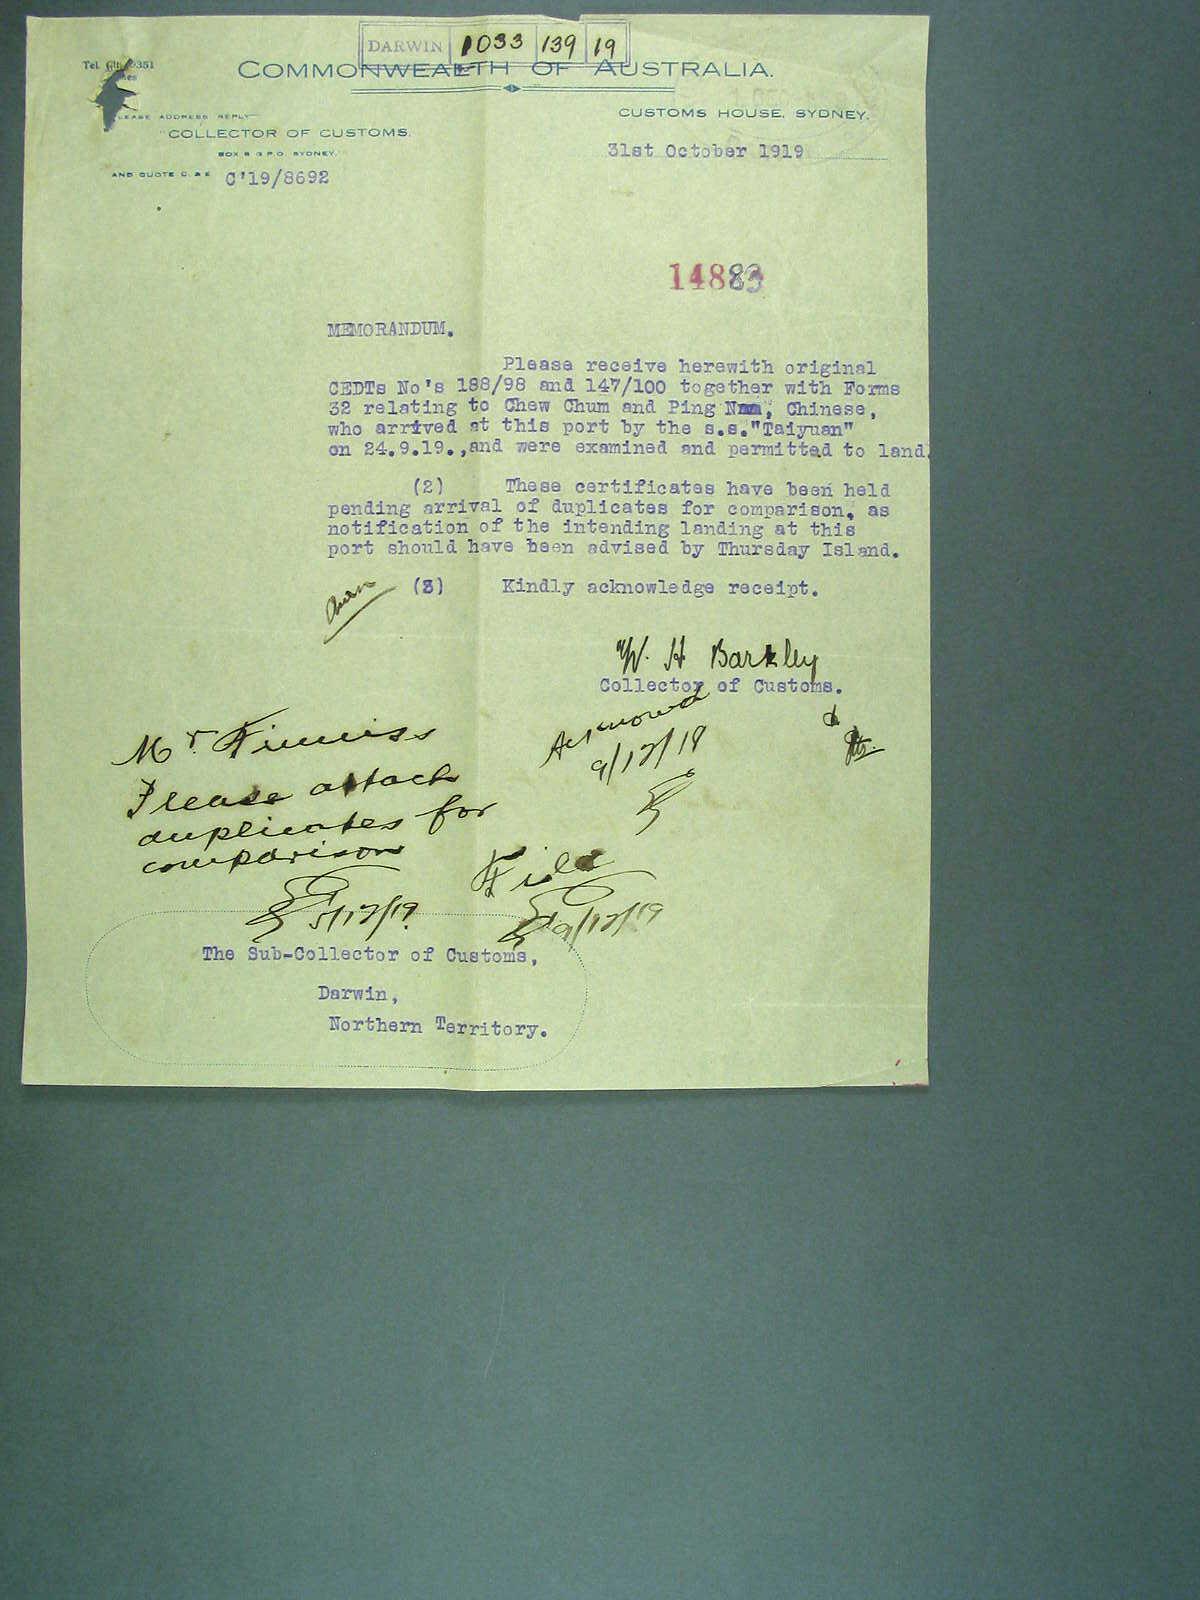 DARWIN 1033 139 19
COMMONWEALTH OF AUSTRALIA.
Tel. 9351
CUSTOMS HOUSE, SYDNEY.
PLEASE ADDRESS REPLY
"COLLECTOR OF CUSTOMS.
BOX 8 G.P.O. SYDNEY.
31st October 1919
AND QUOTE C. & E C'19/8692
14883
MEMORANDUM.
Please receive herewith original
CEDTs No's 188/98 and 147/100 together with Forms
32 relating to Chew Chum and Ping Nam, Chinese,
who arrived at this port by the s.s."Taiyuan"
on 24.9.19.,and were examined and permitted to land.
(2) These certificates have been held
pending arrival of duplicates for comparison, as
notification of the intending landing at this
port should have been advised by Thursday Island.
(3) Kindly acknowledge receipt.
W. H Barkley
Collector of Customs.
Acknowd
9/12/19
Mr. Finniss
Please attach
duplicates for
comparison
5/12/19.
File
9/12/19
The Sub-Collector of Customs,
Darwin,
Northern Territory.